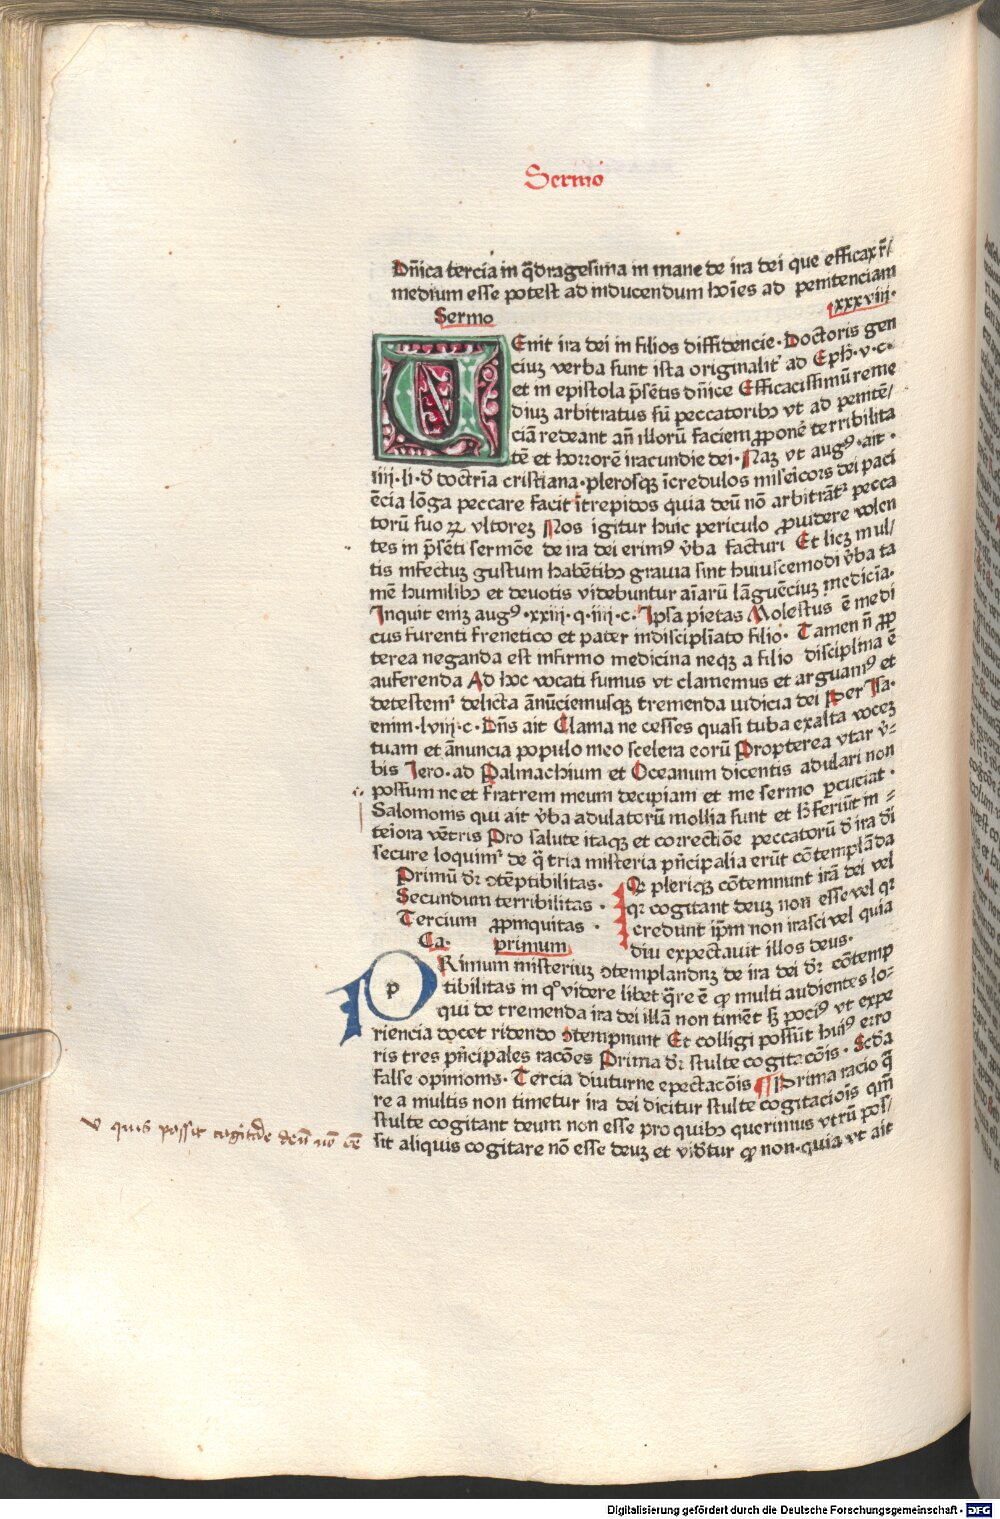 Sermo
Dn̄ica tercia in q̄dragesima in mane de ira dei que efficax r̄/
medium esse potest ad inducendum hoīes ad penitenciam
Sermo xxxviii·
UEnit ira dei in filios diffidencie· Doctoris gen
ciuꝫ verba sunt ista originalit̓ ad Eph̄·v·c·
et in epistola p̄sētis dn̄ice Efficacissimū reme
diuꝫ arbitratus sū peccatoribꝫ vt ad penitē/
ciā redeant an̄ illorū faciem ꝓponē terribilita
tē et horrorē iracundie dei· Naꝫ vt augꝰ·ait·
iiii·li·d̄ doctrīa cristiana· plerosqꝫ īcredulos misēicors dei paci
ēcia lōga peccare facit ītrepidos quia deū nō arbitrāt᷑ pecca
torū suoꝝ vltoreꝫ Nos igitur huic periculo ꝓuidere volen
tes in p̄sēti sermōe de ira dei erimꝰ v̄ba facturi Et licꝫ mul/
tis infectuꝫ gustum habētibꝫ grauia sint huiuscemodi v̄ba ta
mē humilibꝫ et deuotis videbuntur aīarū lāguēciuꝫ medicīa·
Inquit eniꝫ augꝰ·xxiii·q·iiii·c· Ipsa pietas Molestus ē medi
cus furenti frenetico et pater indiscipliāto filio· Tamen n̄ ꝓp
terea neganda est infirmo medicina neqꝫ a filio disciplina ē
auferenda Ad hoc vocati sumus vt clamemus et arguamꝰ et
detestem᷑ delicta ānūciemusqꝫ tremenda iudicia dei Per Isa·
enim·lviii·c·Dn̄s ait Clama ne cesses quasi tuba exalta voceꝫ
tuam et ānuncia populo meo scelera eorū Propterea vtar v̄-
bis Iero·ad Palmachium et Oceanum dicentis adulari non
possum ne et fratrem meum decipiam et me sermo ꝑcuciat·
Salomonis qui ait v̄ba adulatorū mollia sunt et h̄ feriūt in=
teīora vētris Pro salute itaqꝫ et correctiōe peccatorū d̄ ira d̄i
secure loquim᷑ de q̄ tria misteria pn̄cipalia erūt cōtemplāda
Primū dr̄ ↄtēptibilitas·
Secundum terribilitas·
Tercium ꝓpinquitas·
Qꝛ pleriqꝫ cōtemnunt irā dei vel
qꝛ cogitant deuꝫ non esse vel qꝛ
credunt ip̄m non irasci vel quia
diu expectauit illos deus·
Ca· primum
PRimum misteriuꝫ ↄtemplandnꝫ de ira dei dr̄ cōtemp
tibilitas in qͦ videre libet q̄re ē ꝙ multi audientes lo-
qui de tremenda ira dei illā non timēt sꝫ pociꝰ vt expe
riencia docet ridendo ↄtempnunt Et colligi possūt huiꝰ erro
ris tres pn̄cipales racōes Prima dr̄ stulte cogitacōis· Scd̄a
false opinionis· Tercia diuturne epectacōis ¶Prima racio q̄
re a multis non timetur ira dei dicitur stulte cogitacioīs qm̄
stulte cogitant deum non esse pro quibꝫ querimus vtrū pos/
sit aliquis cogitare nō esse deuꝫ et vid̄tur ꝙ non·quia vt ait
v quis possit cogitare deū nō eē
Digitalisierung gefördert durch die Deutsche Forschungsgemeinschaft - DFG